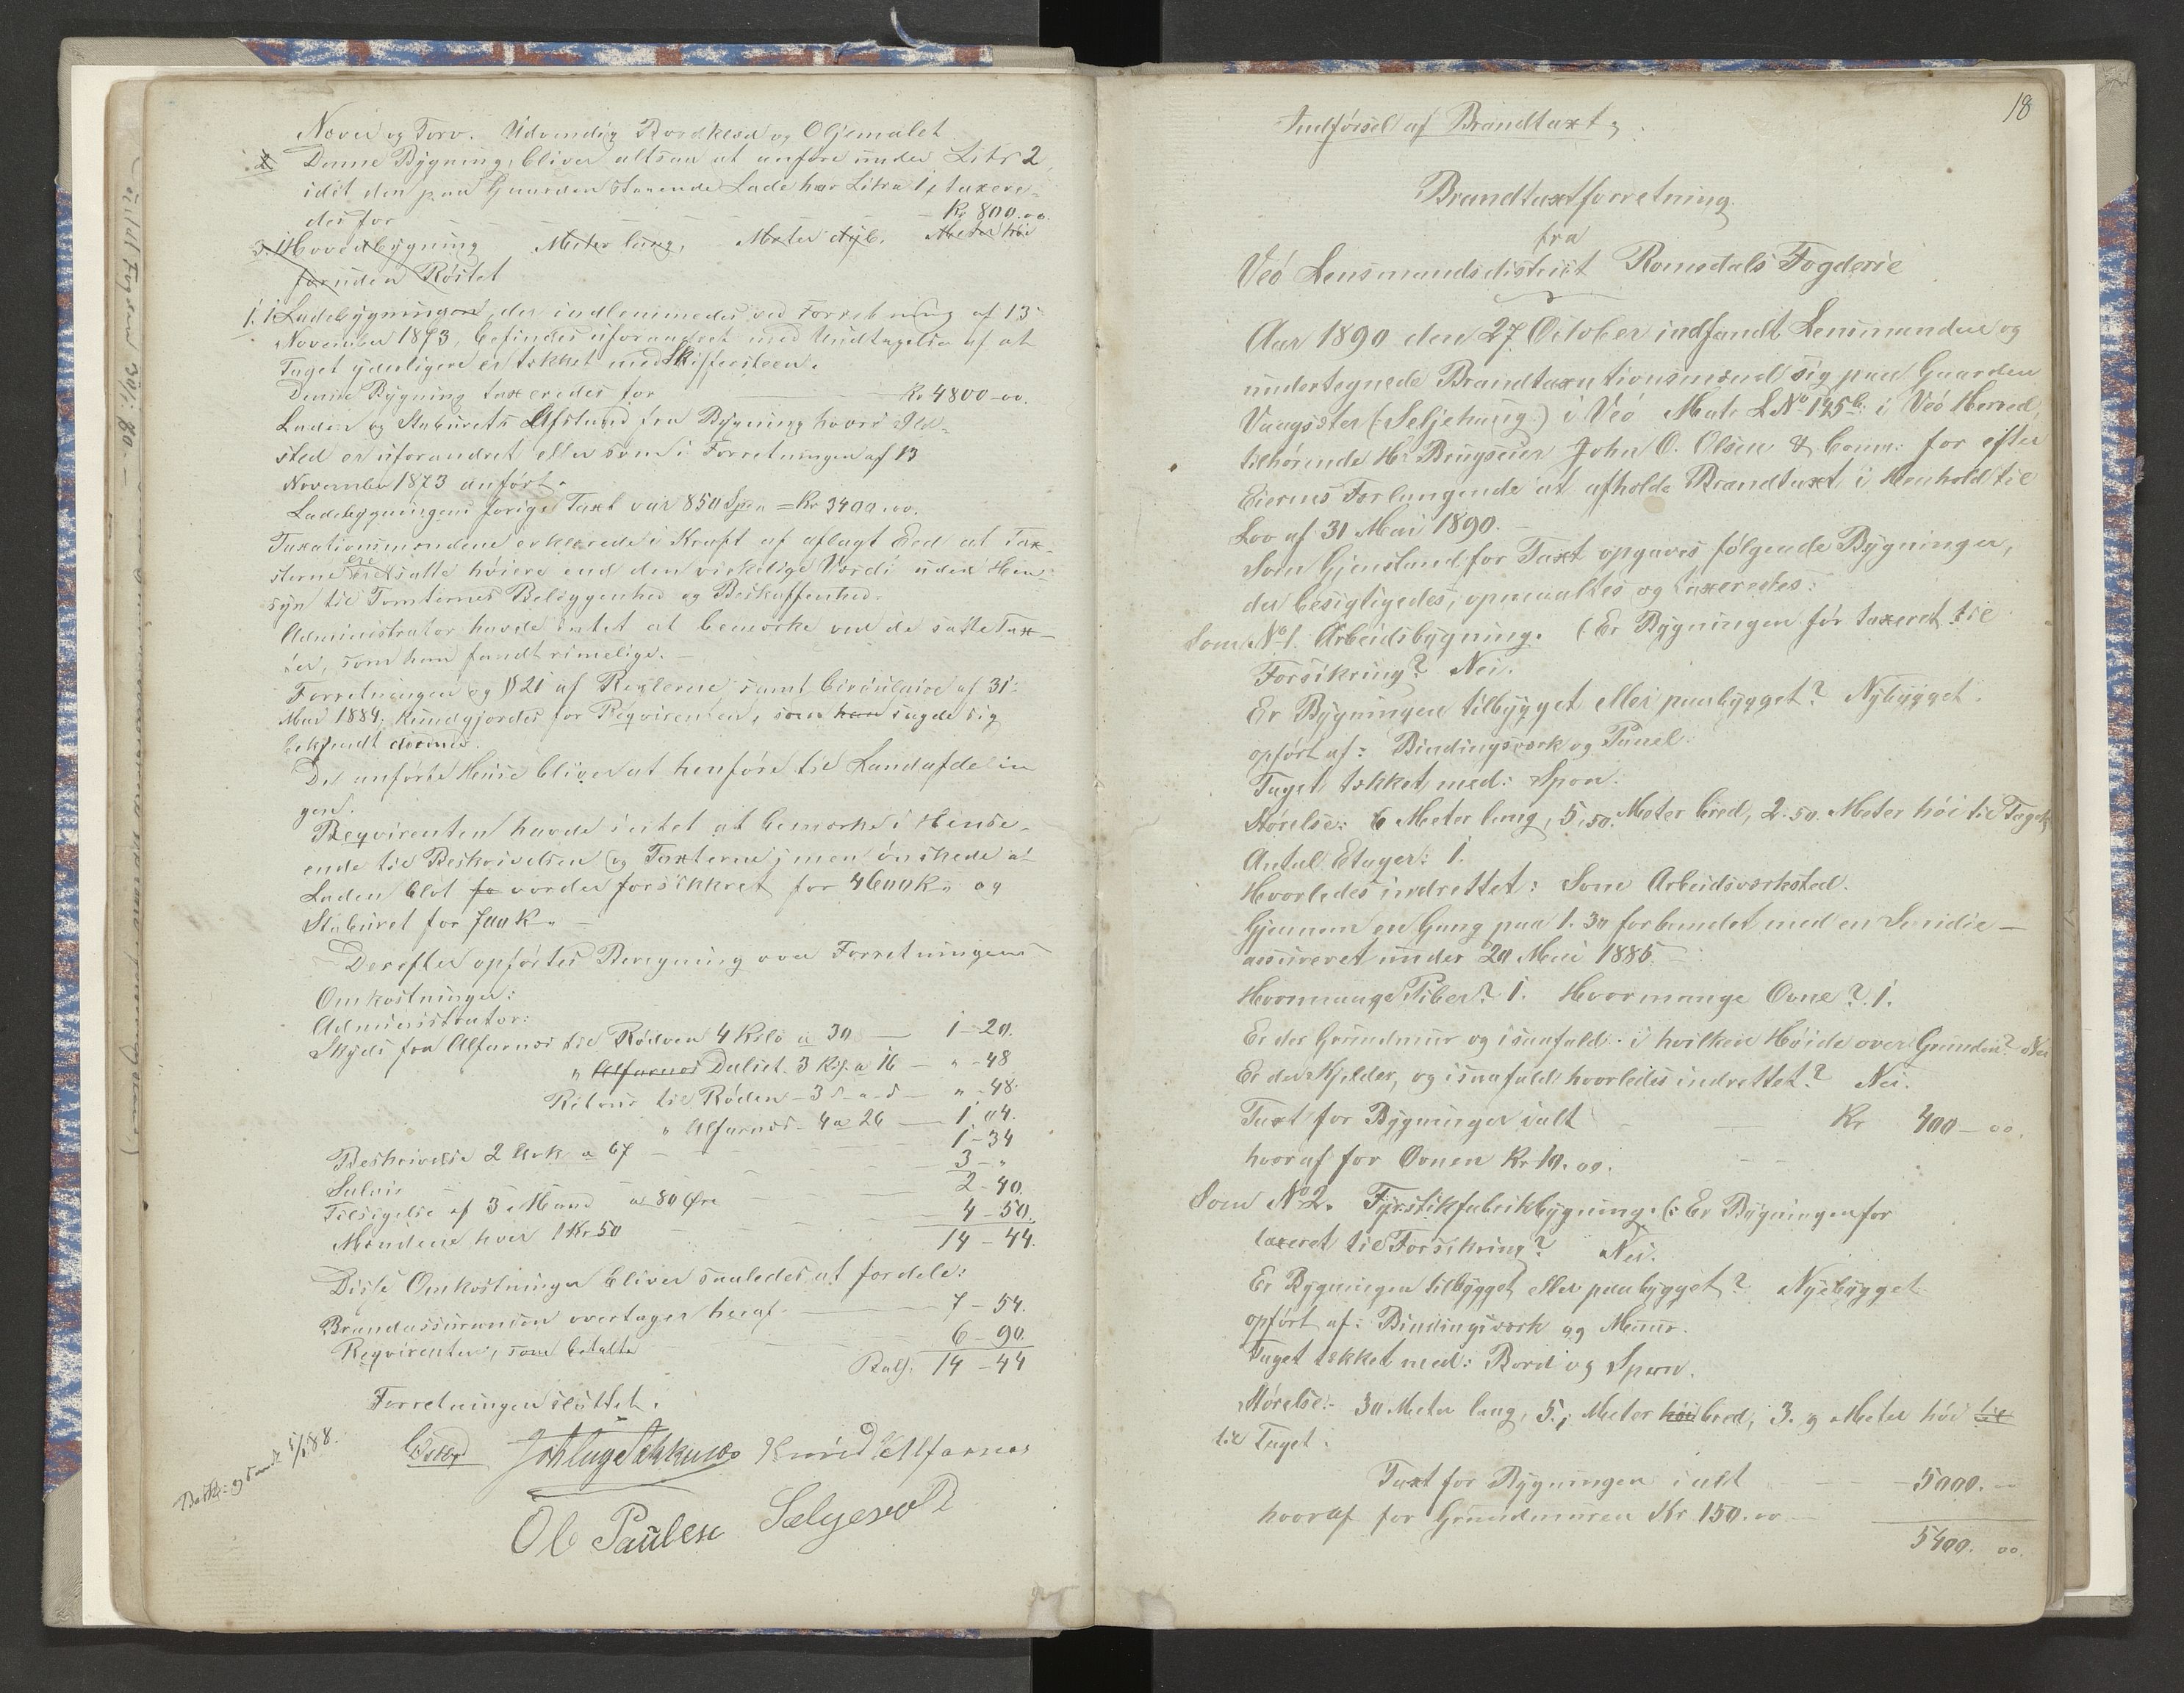 Never og Torv. Udvendig Bordklæd og Oljemalet
2 Denne Bygning, bliver altsaa at anføre under Litr 2,
idet den paa Gaarden staaende Lade har Litra 1, taxere-
des for — Kr. 800.00
3. Hovedbygning Meter lang, Meter dyb, Meter høi
foruden Røstet
1. 1 Ladebygningen, der indlemmedes ved Forretning af 13
November 1873, befindes uforandret med Undtagelse af at
Taget yderligere er tækket med Skifersteen.
Denne Bygning taxeredes for — Kr 4800-00.
Laden og Staburets Afstand fra Bygning hvori Ild-
sted er uforandret eller som i Forretningen af 13
November 1873 anført.
Ladebygningens forige Taxt var 850 Spd = Kr 3400.00.
Taxationsmændene erklærede i Kraft af aflagt Eed at Tax-
sterne ere satte høiere end den virkelige Værdi uden Hen-
syn til Tomternes Beliggenhed og Beskaffenhed.
Administrator havde intet at bemærke ved de satte Tax-
ter, som han fandt rimelige. —
Forretningen og § 21 af Reglerne samt Circulaire af 31
Mai 1884, kundgjordes for Reqvirenten, som han sagde sig
bekjendt dermed.
De anførte Huse bliver at henføre til Landafdelin
gen.
Reqvirenten havde intet at bemærke i Hense-
ende til Beskrivelsen og Taxterne; men ønskede at
Laden blot fo vorder forsikkret for 4600 Kr og
Staburet for 700 Kr —
Derefter opførtes Beregning over Forretningens
Omkostninger:
Administrator:
Skyds fra Alfarnes til Rødven 4 Kilo a 30 — 1-20.
" Alfarnes Dalset 3 Kil. a 16 — "-48
Retour til Røden - 3 - a - — "-48.
" Alfarnes - 4 a 26 — 1 04.
Beskrivelse 2 Ark a 67 — 1-34
Salair — 3-"
Tilsigelse af 3 Mand a 80 Øre — 2-40.
Mændene hver 1 Kr 50 — 4-50.
14-44.
Disse Omkostninger bliver saaledes at fordele:
Brandassurancen overtager heraf — 7-54.
Reqvirenten, som betalte — 6-90.
Bal. 14-44
Forretningen sluttet.
Knud Alfarnes
Ole Paulsen Sølgesvold
Indførsel af Brandtaxt,
18
Brandtaxtforretning
fra
Veø Lensmandsdistrict Romsdals Fogderie
Aar 1890 den 27 October indfandt Lensmanden og
undertegnede Brandtaxationsmænd sig paa Gaarden
Vaagsæter (: Seljehaug:) i Veø Matr. L No 125 b. i Veø Herred,
tilhørende Hr. Brugseier John O. Olsen & Comp: for efter
Eierens Forlangende at afholde Brandtaxt i Henhold til
Lov af 31 Mai 1890. —
Som Gjenstand for Taxt opgaves følgende Bygninger,
der besigtigedes, opmaaltes og taxeredes:
Som No 1. Arbeidsbygning. (: Er Bygningen før taxeret til
Forsikring? Nei.
Er Bygningen tilbygget eller paabygget? Nybygget.
opført af: Bindingsværk og Panel.
Taget tækket med: Spon.
Størelse: 6 Meter lang, 5,50. Meter bred, 2.50. Meter høi til Taget
Antal Etager: 1.
Hvorledes indrettet: Som Arbeidsværksted.
Gjennem en Gang paa 1.30 forbundet med en Smidie —
assureret under 20 Mai 1885.
Hvormange Piber? 1. Hvormange Ovne? 1.
Er der Grundmur og isaafald i hvilken Høide over Grunden? Nei
Er der Kjelder, og isaafald hvorledes indrettet? Nei.
Taxt for Bygningen ialt — Kr 400-00.
hvoraf for Ovnen Kr 10.00.
Som No 2. Fyrstikfabrikbygning. (: Er Bygningen før
taxeret til Forsikring? Nei.
Er Bygningen tilbygget eller paabygget? Nyebygget
opført af: Bindingsværk og Muur.
Taget tækket med: Bord og Spon.
Størelse:- 30 Meter lang, 5., Meter høi bred, 3. " Meter høi til
til Taget:
Taxt for Bygningen i alt — 5000.—
hvoraf for Grundmuren Kr 150.00 —
5400. 00.